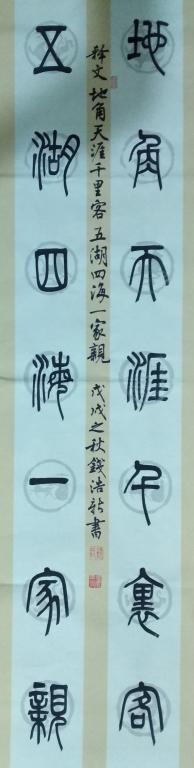 地角天涯千里客
五湖四海一家親
释文 地角天涯千里客 五湖四海一家親 戊戌之秋 錢浩新書